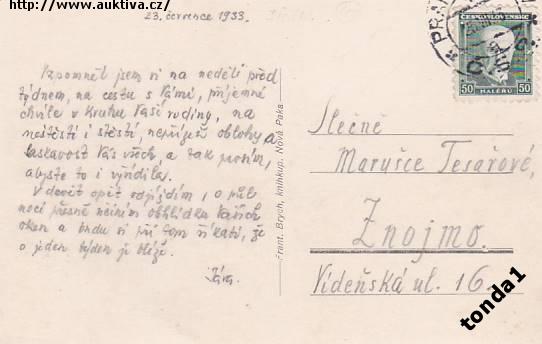 http://www.auktiva.cz/
23. července 1933.
Vzpomněl jsem si na neděli před
týdnem, na cestu s Vámi, příjemné
chvíle v kruhu Vaší rodiny, na
neštěstí i štěstí, nepřízeň oblohy a
laskavost Vás všech, a tak prosím,
abyste to i vyřídila.
V devět opět odjíždím, o půl
noci přesně učiním obhlídku Vašich
oken a budu si při tom říkati, že
o jeden týden je blíže.
Jára.
Frant. Brych, knihkup. Nová Paka
PRAH
ČESKOSLOVENSKO
50 HALÉŘŮ 50
Slečně
Marušce Tesařové,
Znojmo.
Vídeňská ul. 16.
tonda1